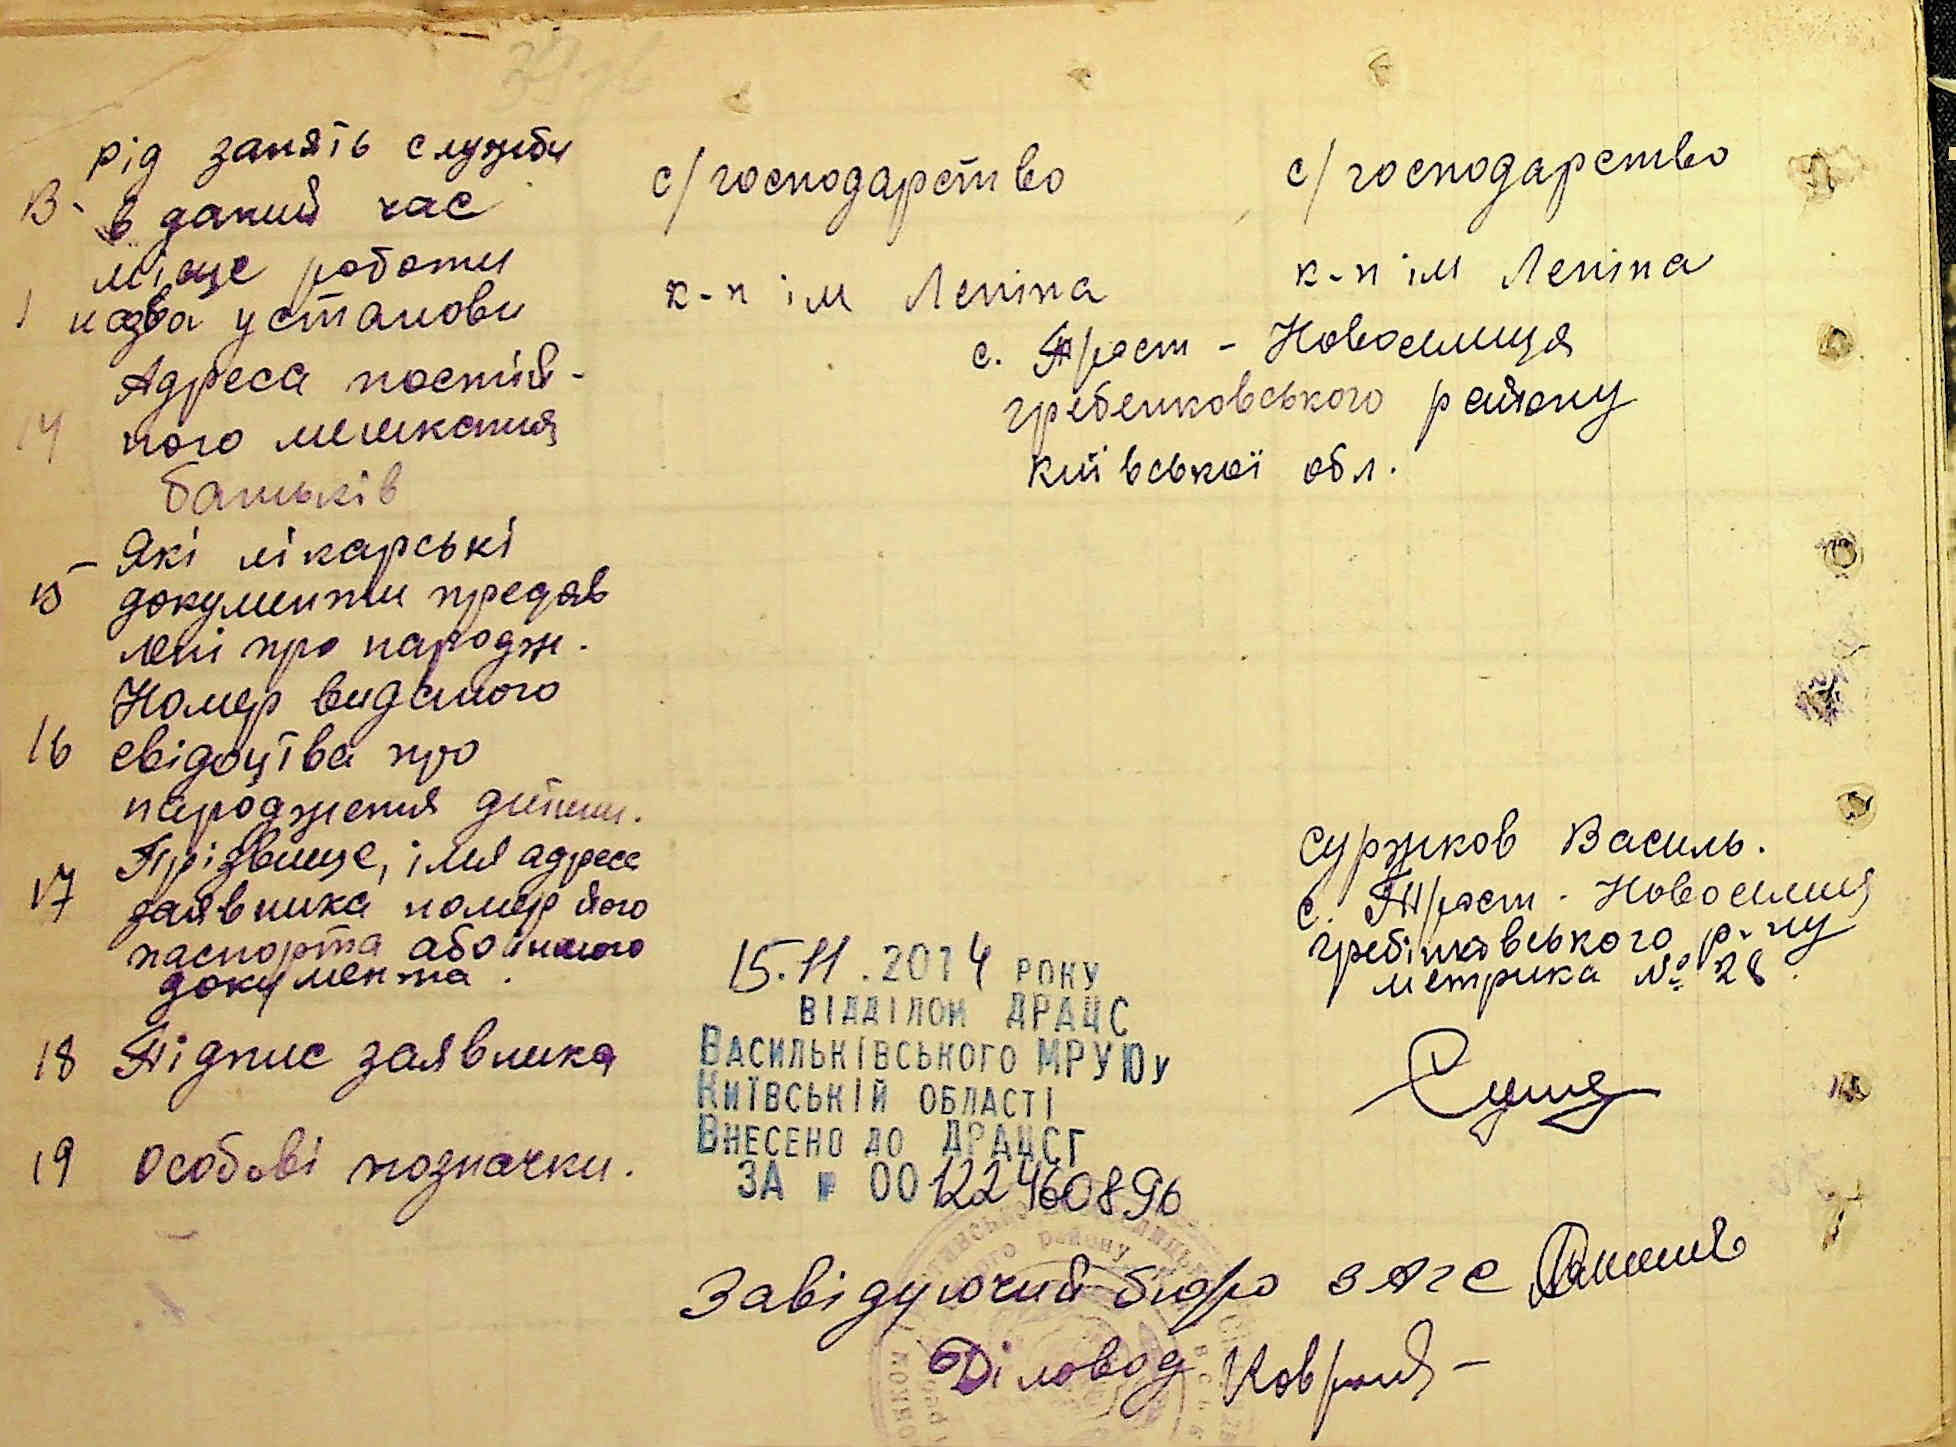 рід занять служби
в даний час
с/господарство
с/господарство
місце роботи
назва установи
к-п ім Леніна
к-п ім Леніна
Адреса постій-
14 ного мешкання
батьків
с. Трост - Новоселиця
гребенковського району
київської обл.
Які лікарські
15 документи предяв
лені про народж.
Номер виданого
16 свідоцтва про
народження дитини.
Прізвище, імя адреса
17 заявника номер його
паспорта або іншого
документа.
Суржков Василь.
с. Трост - Новоселиця
гребінковського р-ну
метрика № 28.
15.11.2014 РОКУ
ВІДДІЛОМ ДРАЦС
ВАСИЛЬКІВСЬКОГО МРУЮ у
КИЇВСЬКІЙ ОБЛАСТІ
ВНЕСЕНО ДО ДРАЦСГ
ЗА № 00122460896
18 Підпис заявника
19 Особові позначки.
Завідуючий бюро ЗАГС
Діловод